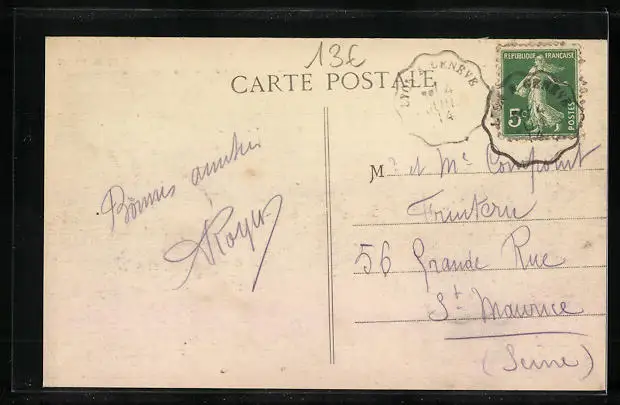 13€
CARTE POSTALE
LYON A GENEVE
4
JUIL
14
REPUBLIQUE FRANÇAISE
5c
POSTES
Bonnes amitiés
Royer
Mr et Me Compoint
56 Grande Rue
St Maurice
(Seine)